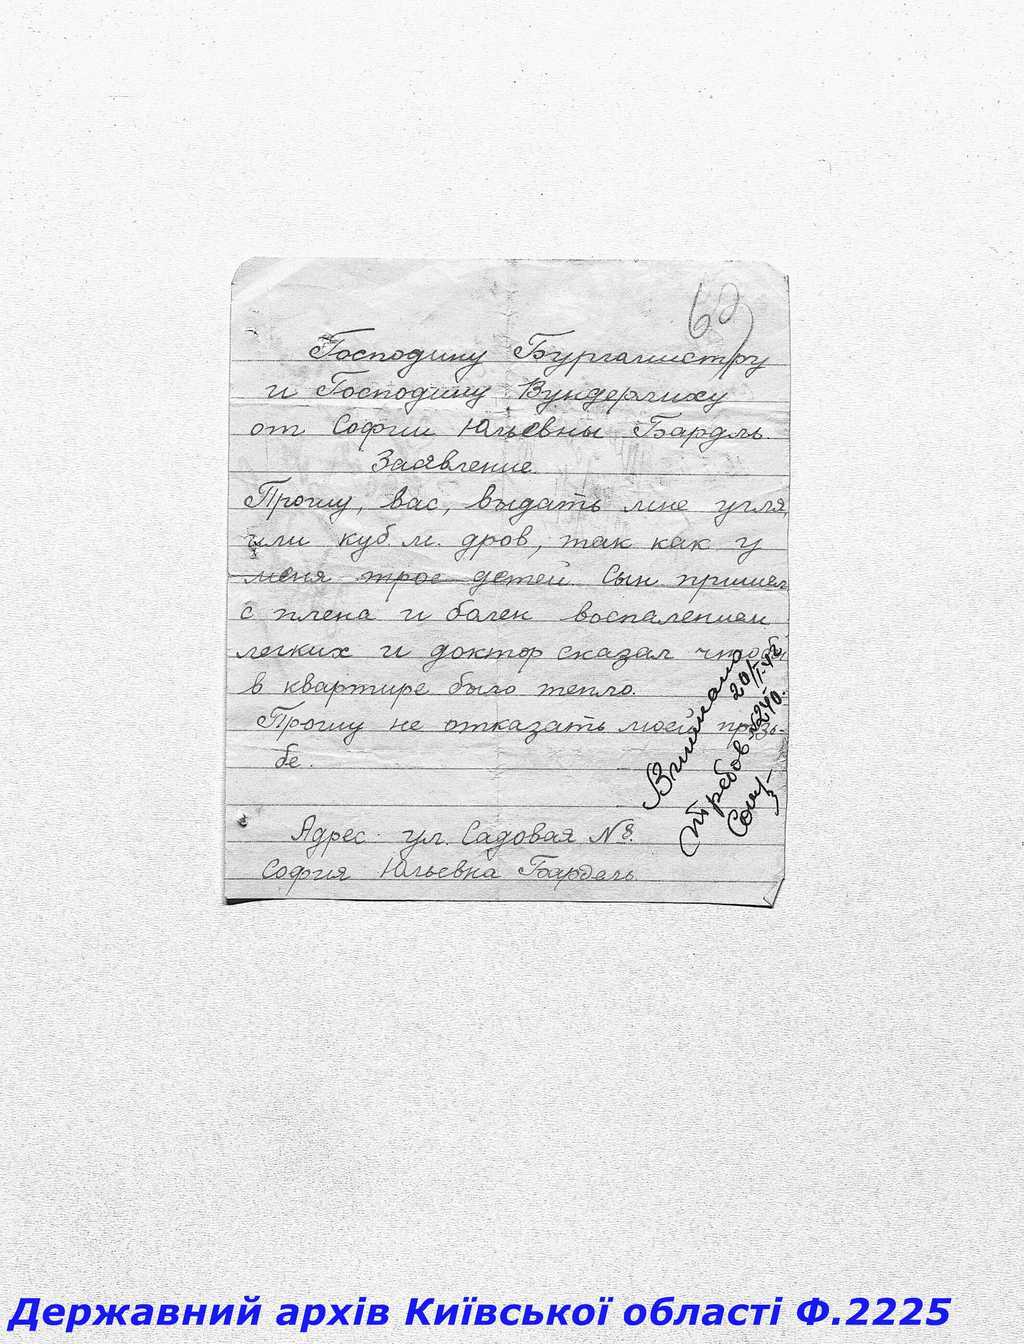 69
Господину Бургамистру
и Господину Вундерлиху
от Софии Юльевны Бардль.
Заявление.
Прошу, вас, выдать мне угля,
или куб. м. дров, так как у
меня трое детей. Сын пришел
с плена и болен воспалением
легких и доктор сказал чтобы
в квартире было тепло.
Прошу не отказать моей прозь-
бе.
Выписано
20/I-42
требов №240.
Адрес. ул. Садовая №8.
София Юльевна Бардель
Державний архів Київської області Ф.2225